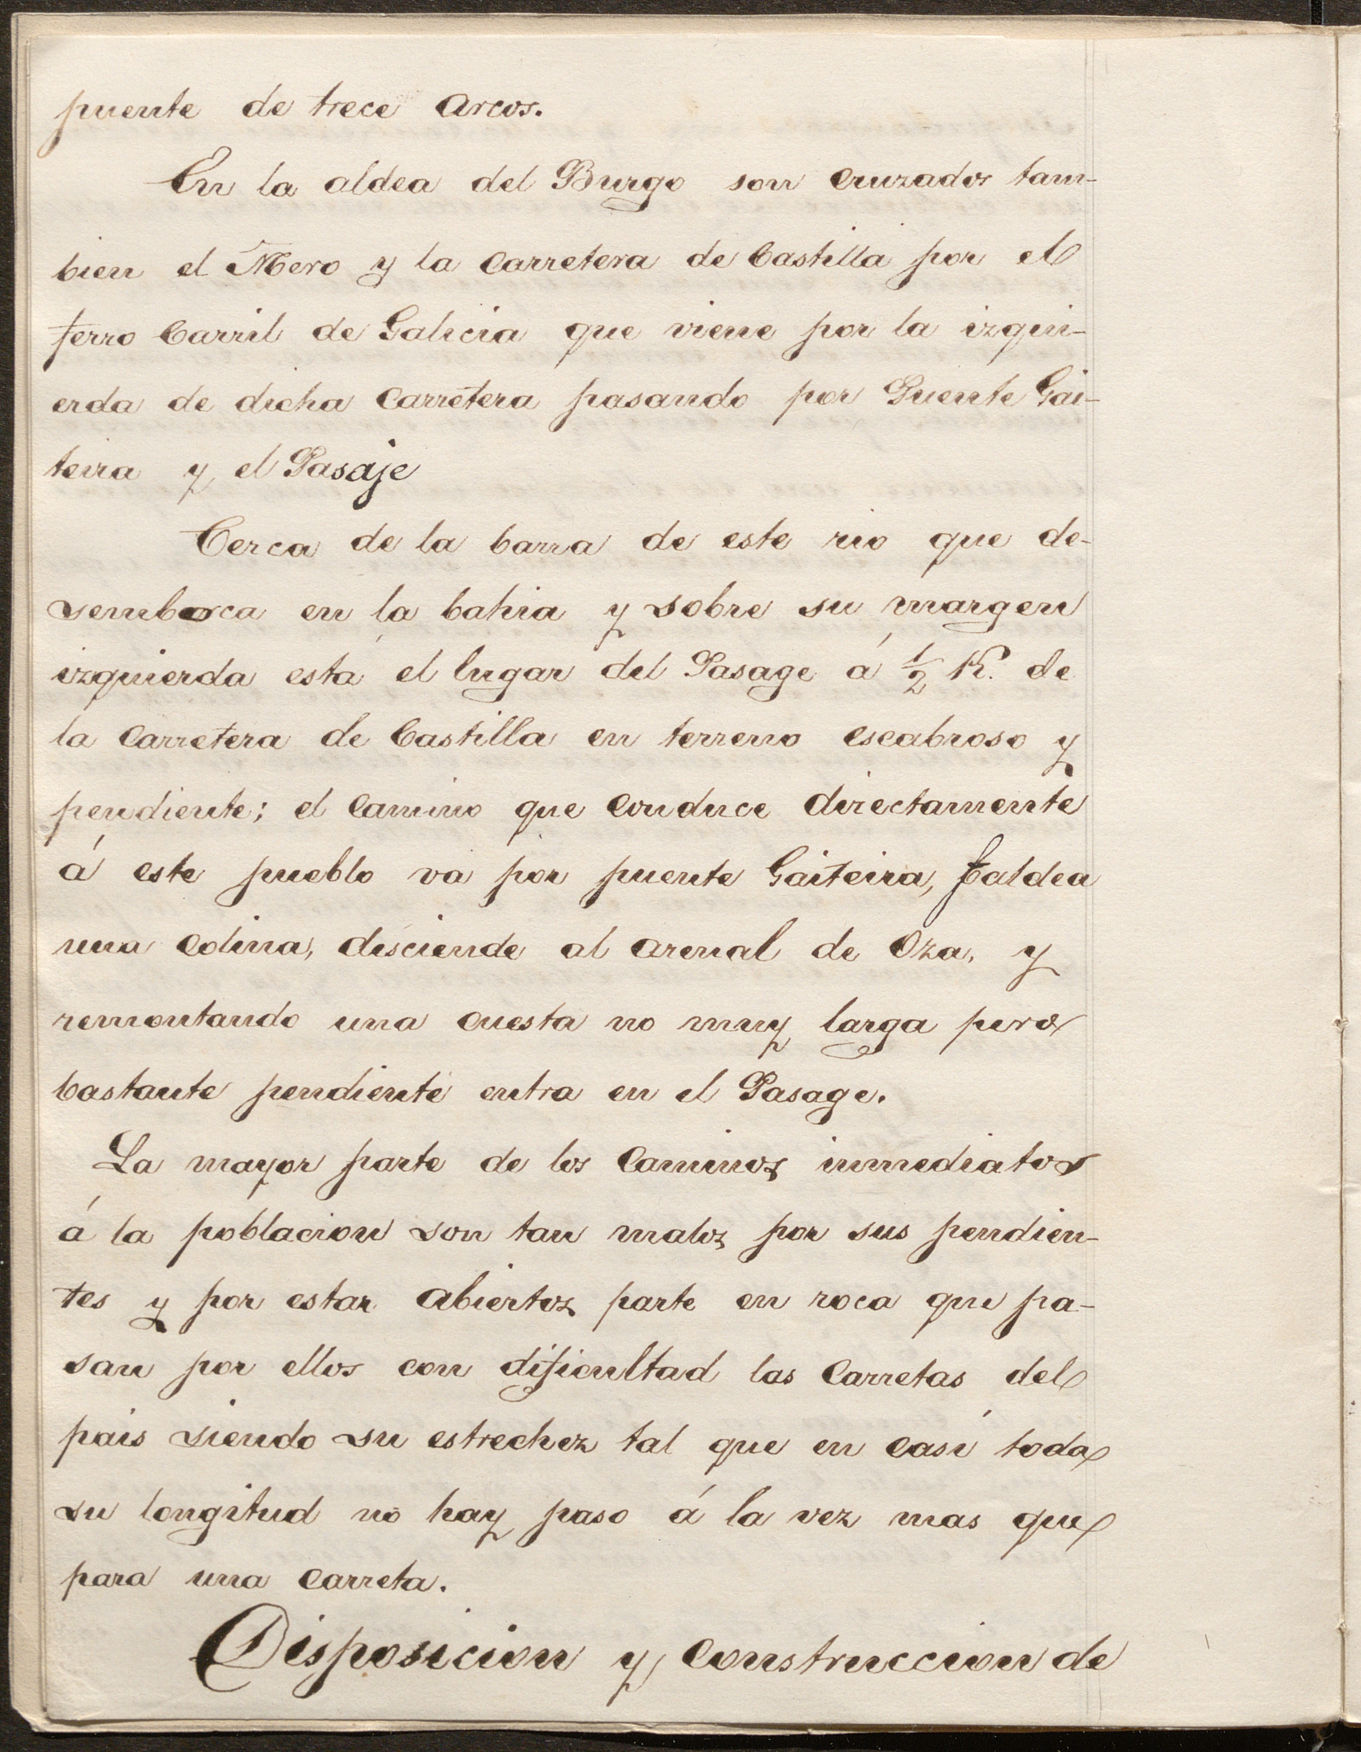 puente de trece arcos.
En la aldea del Burgo son cruzados tam-
bien el Mero y la carretera de Castilla por el
ferro Carril de Galicia que viene por la izqui-
erda de dicha carretera pasando por Puente Gai-
teira y el Pasaje
Cerca de la barra de este rio que de-
semboca en la bahia y sobre su margen
izquierda está el lugar del Pasage á ½ K. de
la carretera de Castilla en terreno escabroso y
pendiente; el camino que conduce directamente
á este pueblo va por puente Gaiteira, faldea
una colina, desciende al arenal de Oza, y
remontando una cuesta no muy larga pero
bastante pendiente entra en el Pasage.
La mayor parte de los caminos inmediatos
á la poblacion son tan malos por sus pendien-
tes y por estar abiertos parte en roca que pa-
san por ellos con dificultad las carretas del
pais siendo su estrechez tal que en casi toda
su longitud no hay paso á la vez mas que
para una carreta.
Disposicion y construccion de